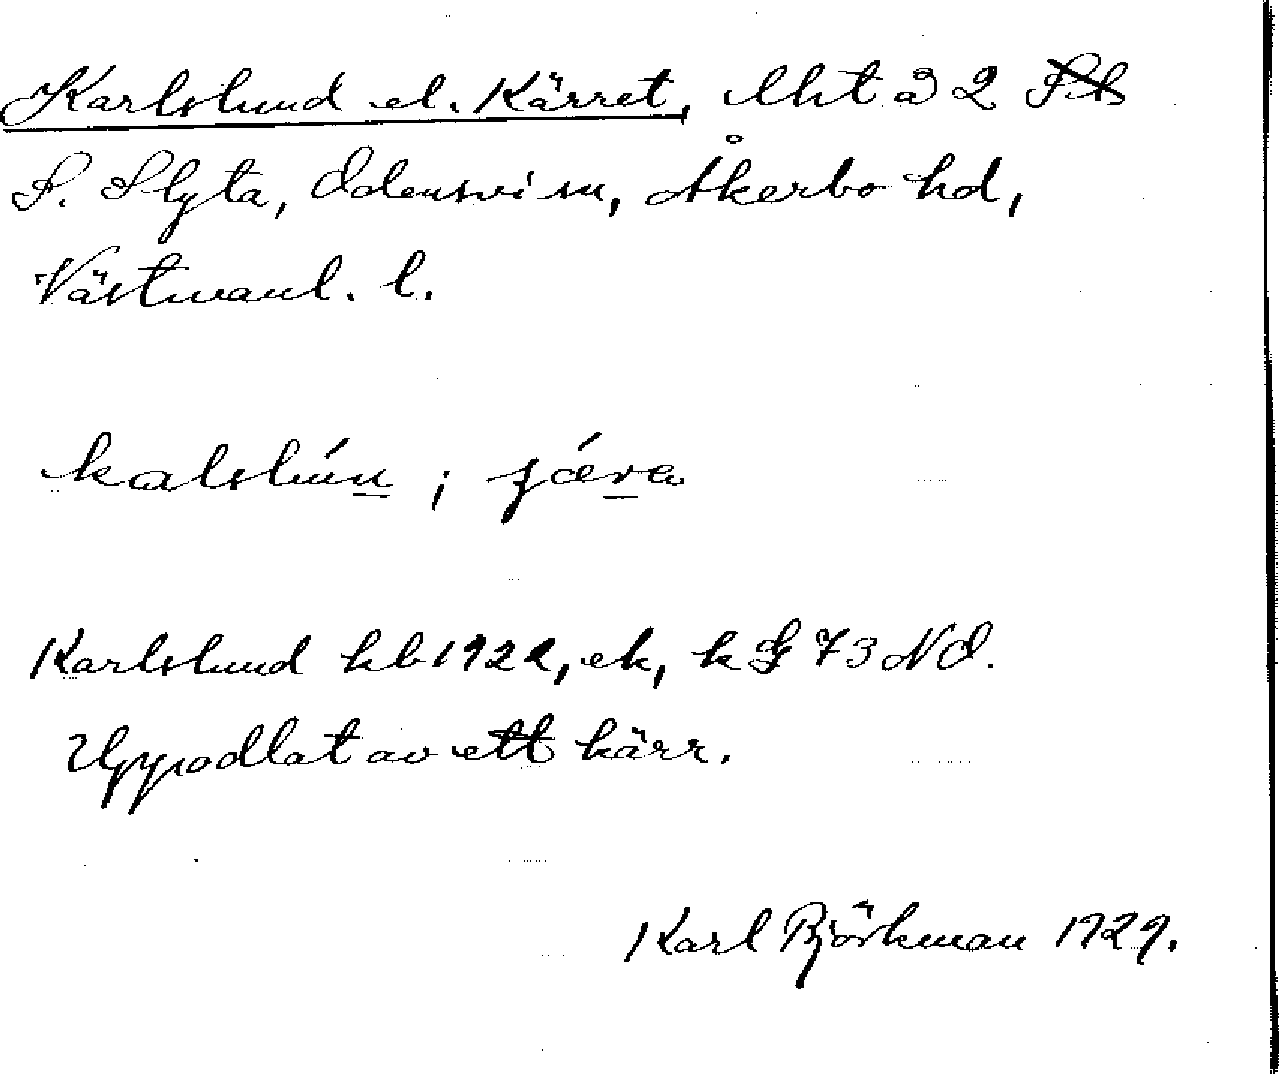 Karlslund el. Kärret, lht å 2
S. Slyta, Odensvi sn, Åkerbo hd,
Västmanl. l.
kalslún ; jǽra
Karlslund kb 1922, ek, k G 73 NO.
Uppodlat av ett kärr.
Karl Björkman 1929.